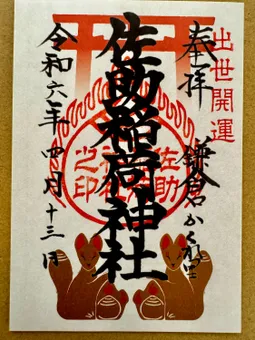 出世開運
奉拝 鎌倉かくれ里
佐助稲荷神社
佐助
之印
令和六年四月十三日